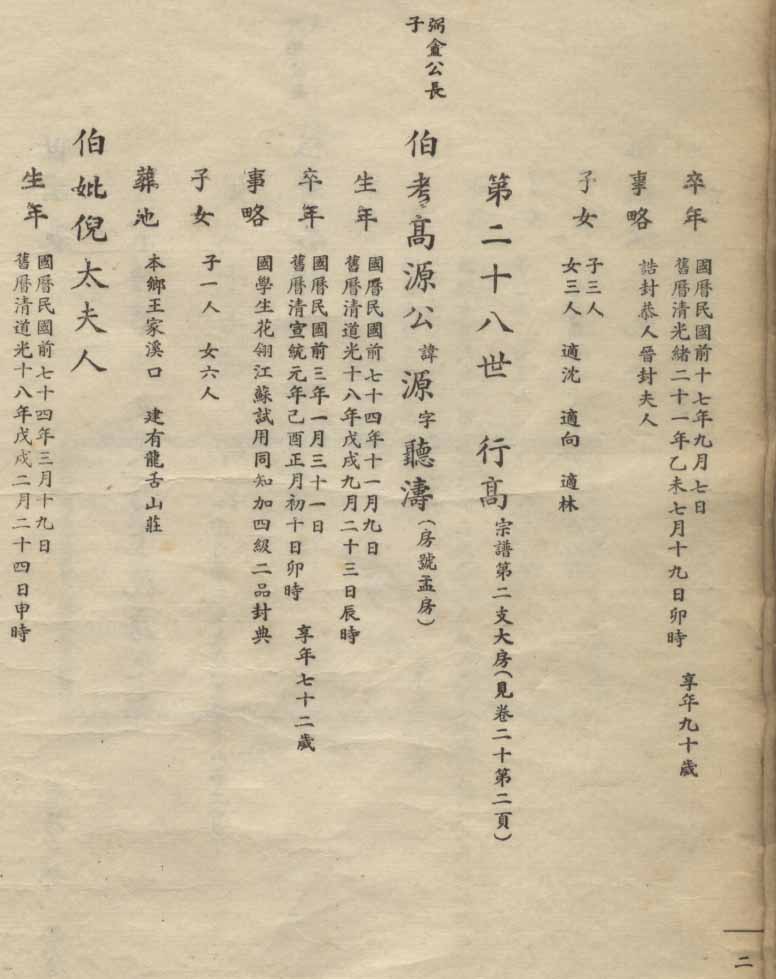 卒年
國曆民國前十七年九月七日
舊曆清光緒二十一年乙未七月十九日卯時 享年九十歲
事略
誥封恭人晉封夫人
子女
子三人
女三人 適沈 適向 適林
第二十八世 行高 宗譜第二支大房(見卷二十第二頁)
弼盦公長
子
伯考高源公 諱源 字聽濤(房號孟房)
生年
國曆民國前七十四年十一月九日
舊曆清道光十八年戊戌九月二十三日辰時
卒年
國曆民國前三年一月三十一日
舊曆清宣統元年己酉正月初十日卯時 享年七十二歲
事略
國學生花翎江蘇試用同知加四級二品封典
子女
子一人 女六人
葬池
本鄉王家溪口 建有龍舌山莊
伯妣倪太夫人
生年
國曆民國前七十四年三月十九日
舊曆清道光十八年戊戌二月二十四日申時
二